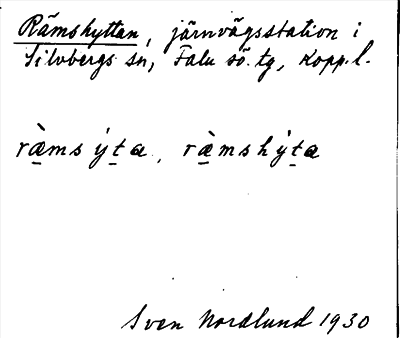 Rämshyttan, järnvägsstation i
Silvbergs sn, Falu sö. tg, Kopp. l.
ræ̀msýta, ræ̀mshýta
Sven Nordlund 1930